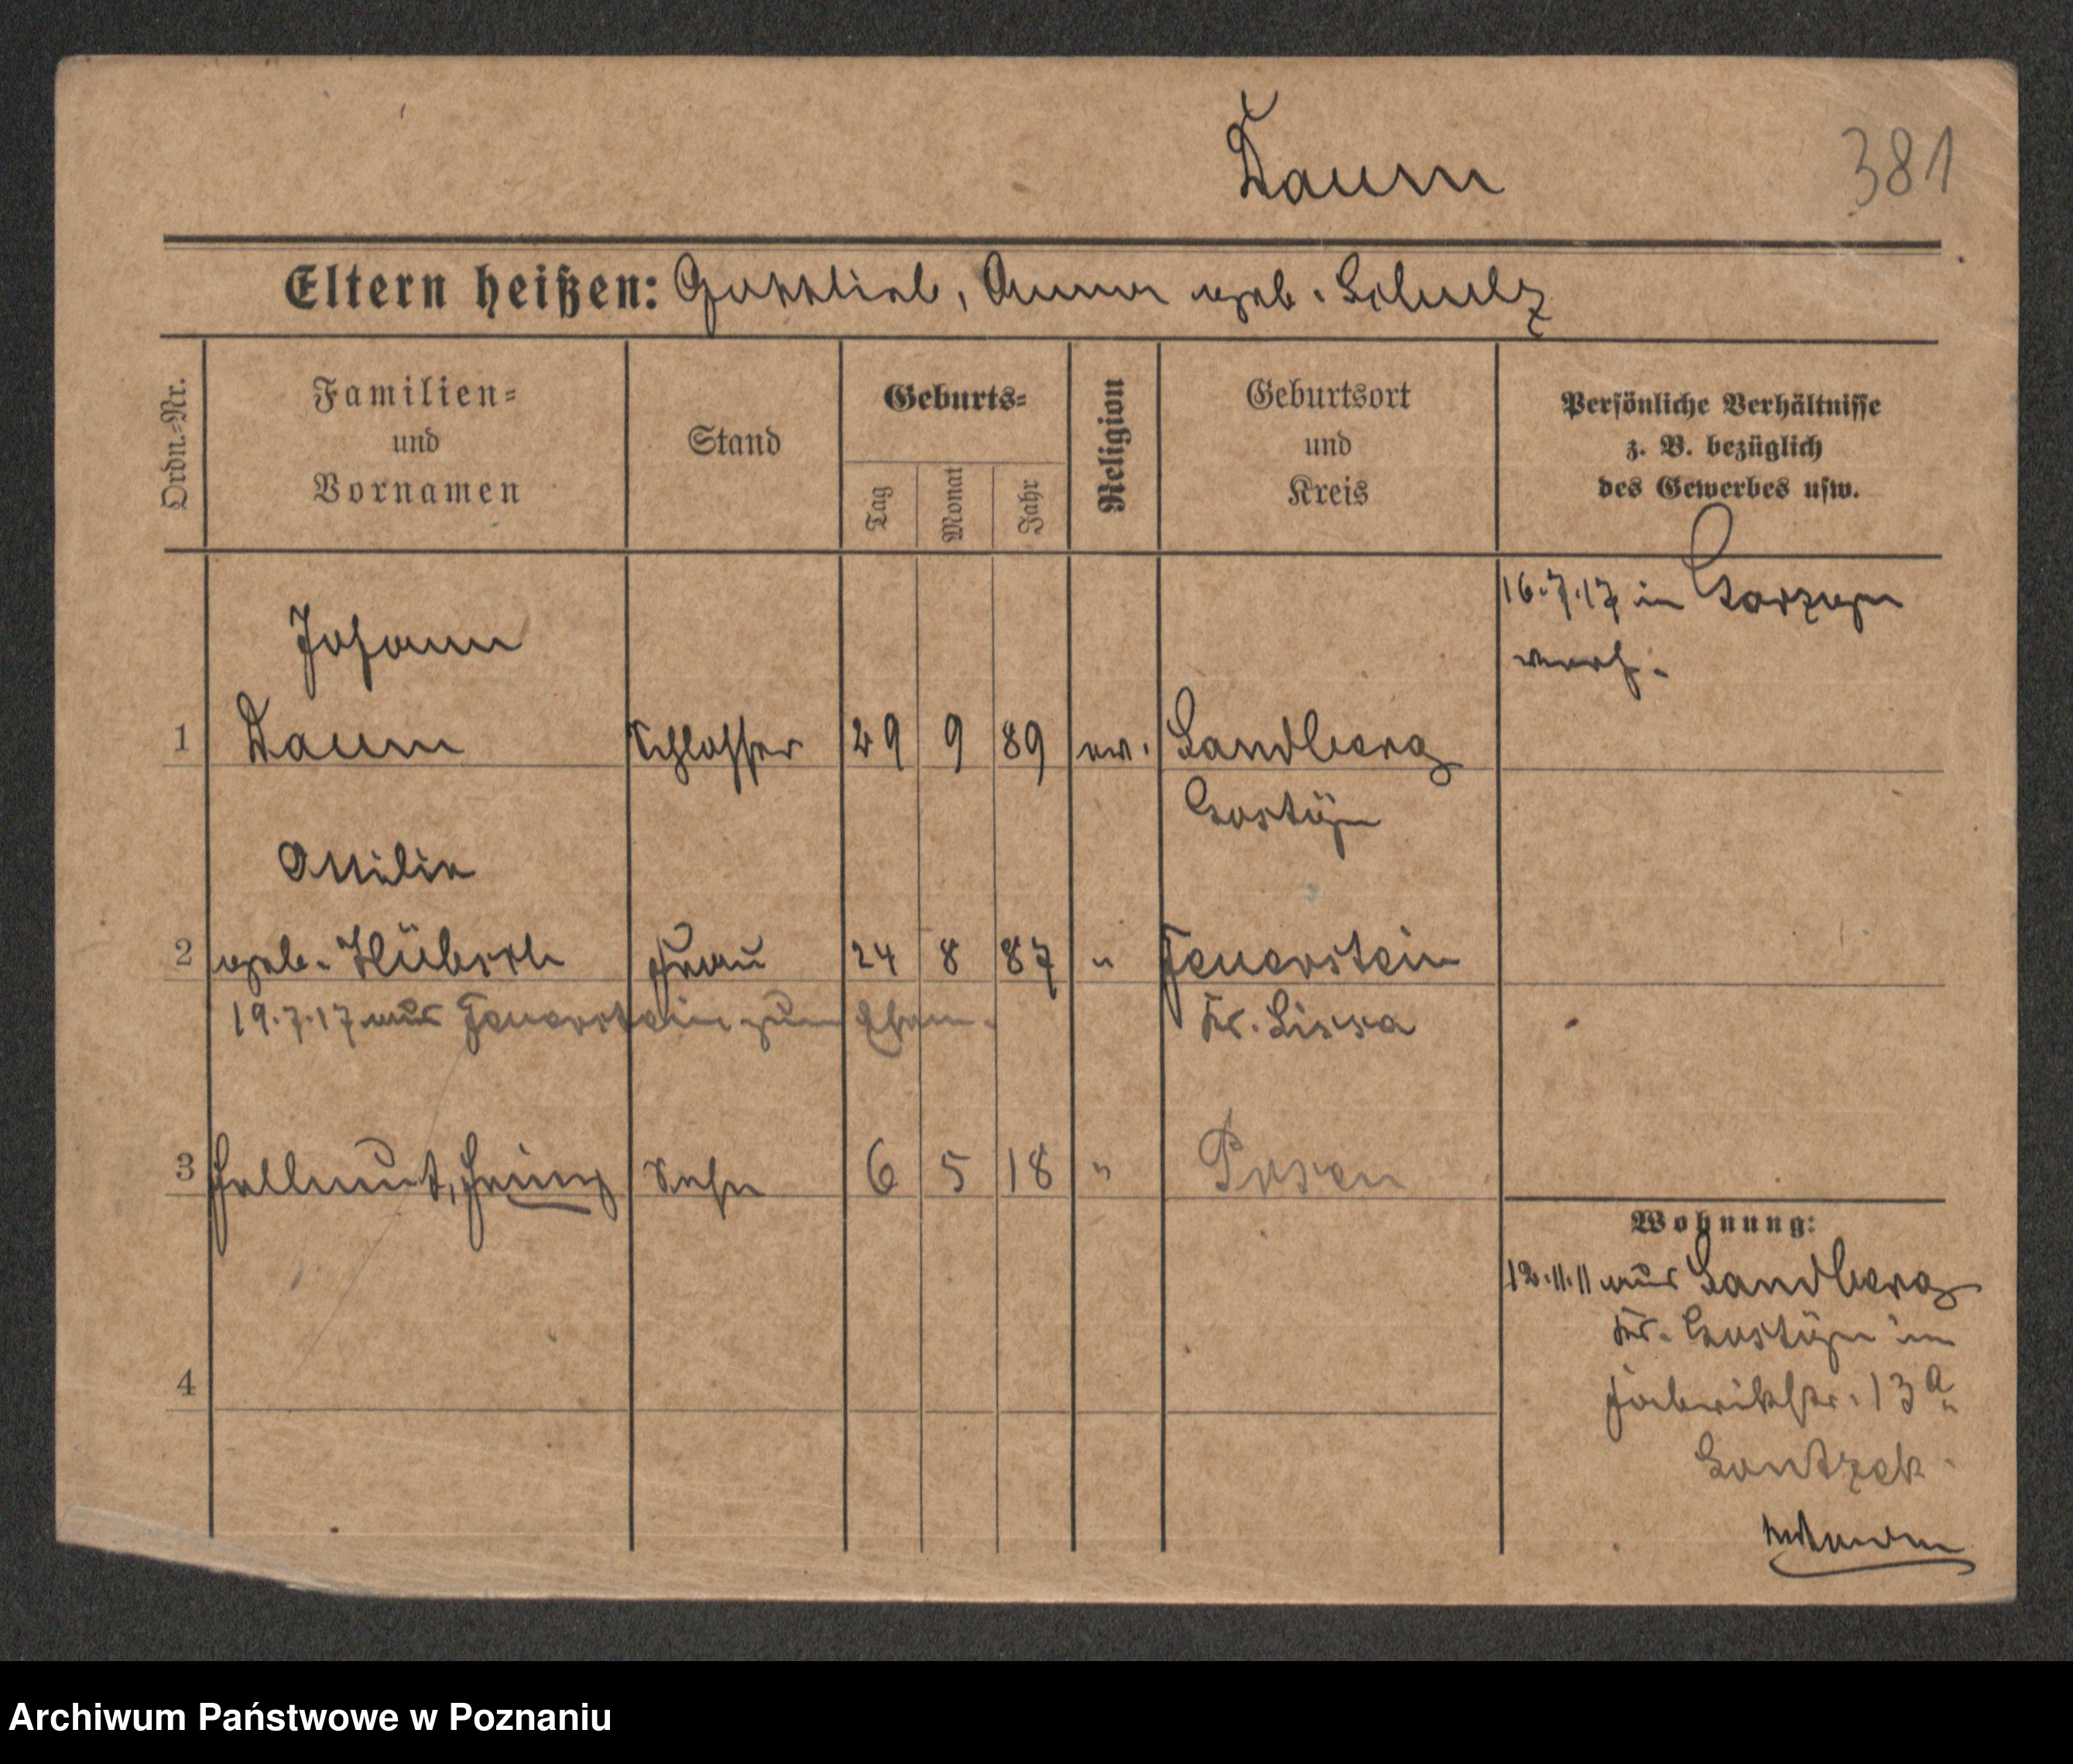 Daum
381
Eltern heißen: Gottlieb, Anna geb. Schulz
Ordn.=Nr.
Familien=
und
Vornamen
Stand
Geburts=
Tag
Monat
Jahr
Religion
Geburtsort
und
Kreis
Persönliche Verhältnisse
z. B. bezüglich
des Gewerbes usw.
16.7.17 in
verh.
Johann
1 Daum Schlosser 29 9 89 ev. Sandberg
Gostÿn
Ottilie
2 geb. Hübsch Frau 24 8 87 " Feuerstein
19.7.17 aus Feuerstein zum Ehem.
Kr. Lissa
3 Hellmut, Heinz Sohn 6 5 18 " Posen
4
Wohnung:
12.11.11 aus Sandberg
Kr. Gostÿn in
Fabrikstr. 13a
Archiwum Państwowe w Poznaniu